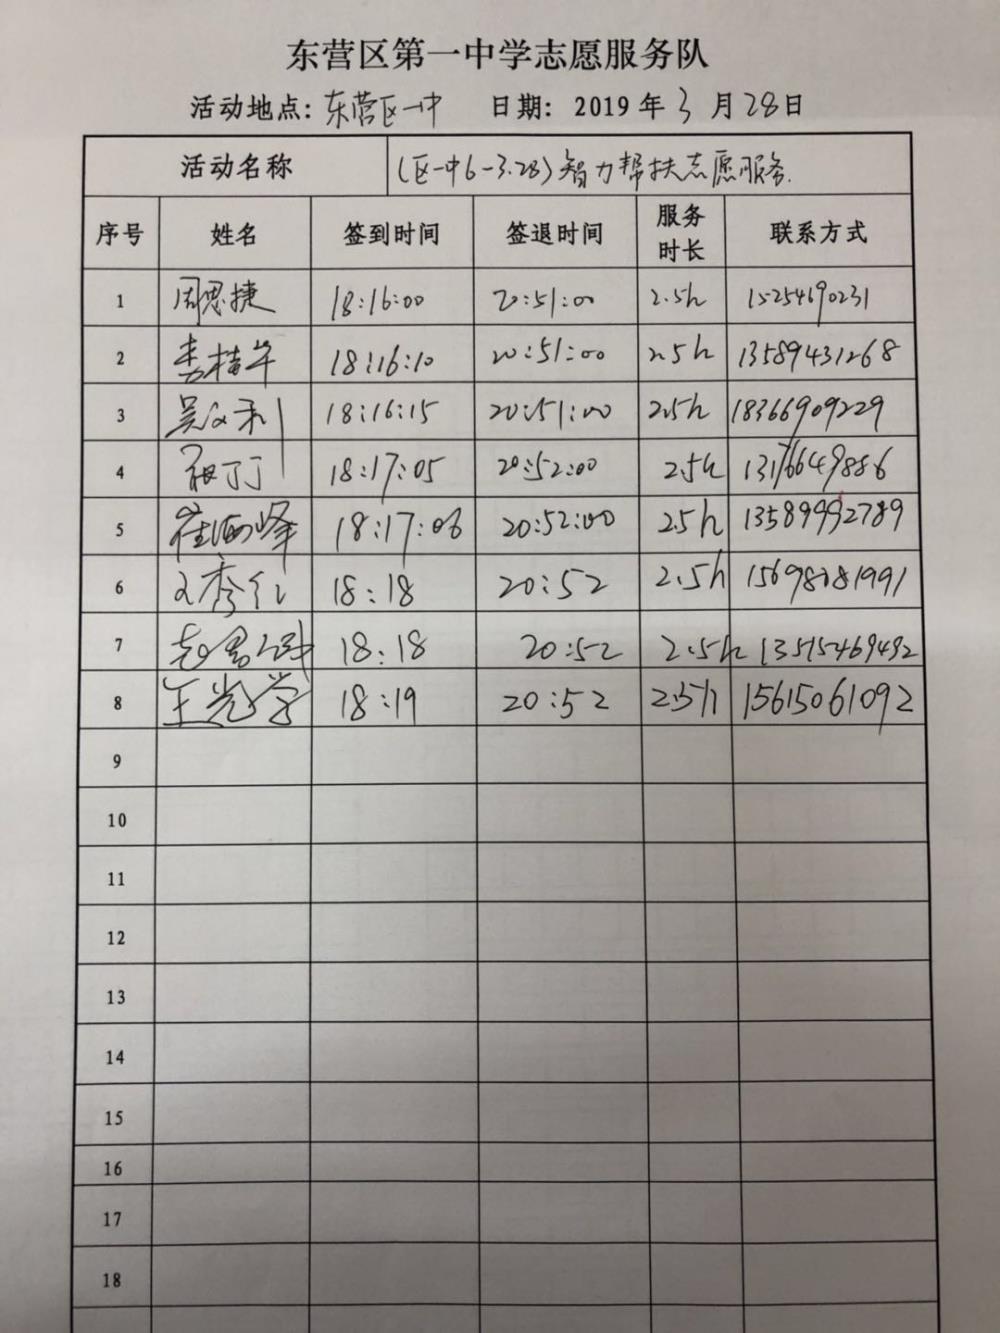 东营区第一中学志愿服务队
活动地点: 东营区一中 日期: 2019年3月28日
活动名称 (区一中6-3.28)智力帮扶志愿服务.
序号 姓名 签到时间 签退时间 服务时长 联系方式
1 周思捷 18:16:00 20:51:00 2.5h 15254690231
2 18:16:10 20:51:00 2.5h 13589431268
3 吴文利 18:16:15 20:51:00 2.5h 18366909229
4 丁丁 18:17:05 20:52:00 2.5h 13176649886
5 崔海峰 18:17:06 20:52:00 2.5h 13589992789
6 18:18 20:52 2.5h
7 赵 18:18 20:52 2.5h
8 王光学 18:19 20:52 2.5h 15615061092
9
10
11
12
13
14
15
16
17
18